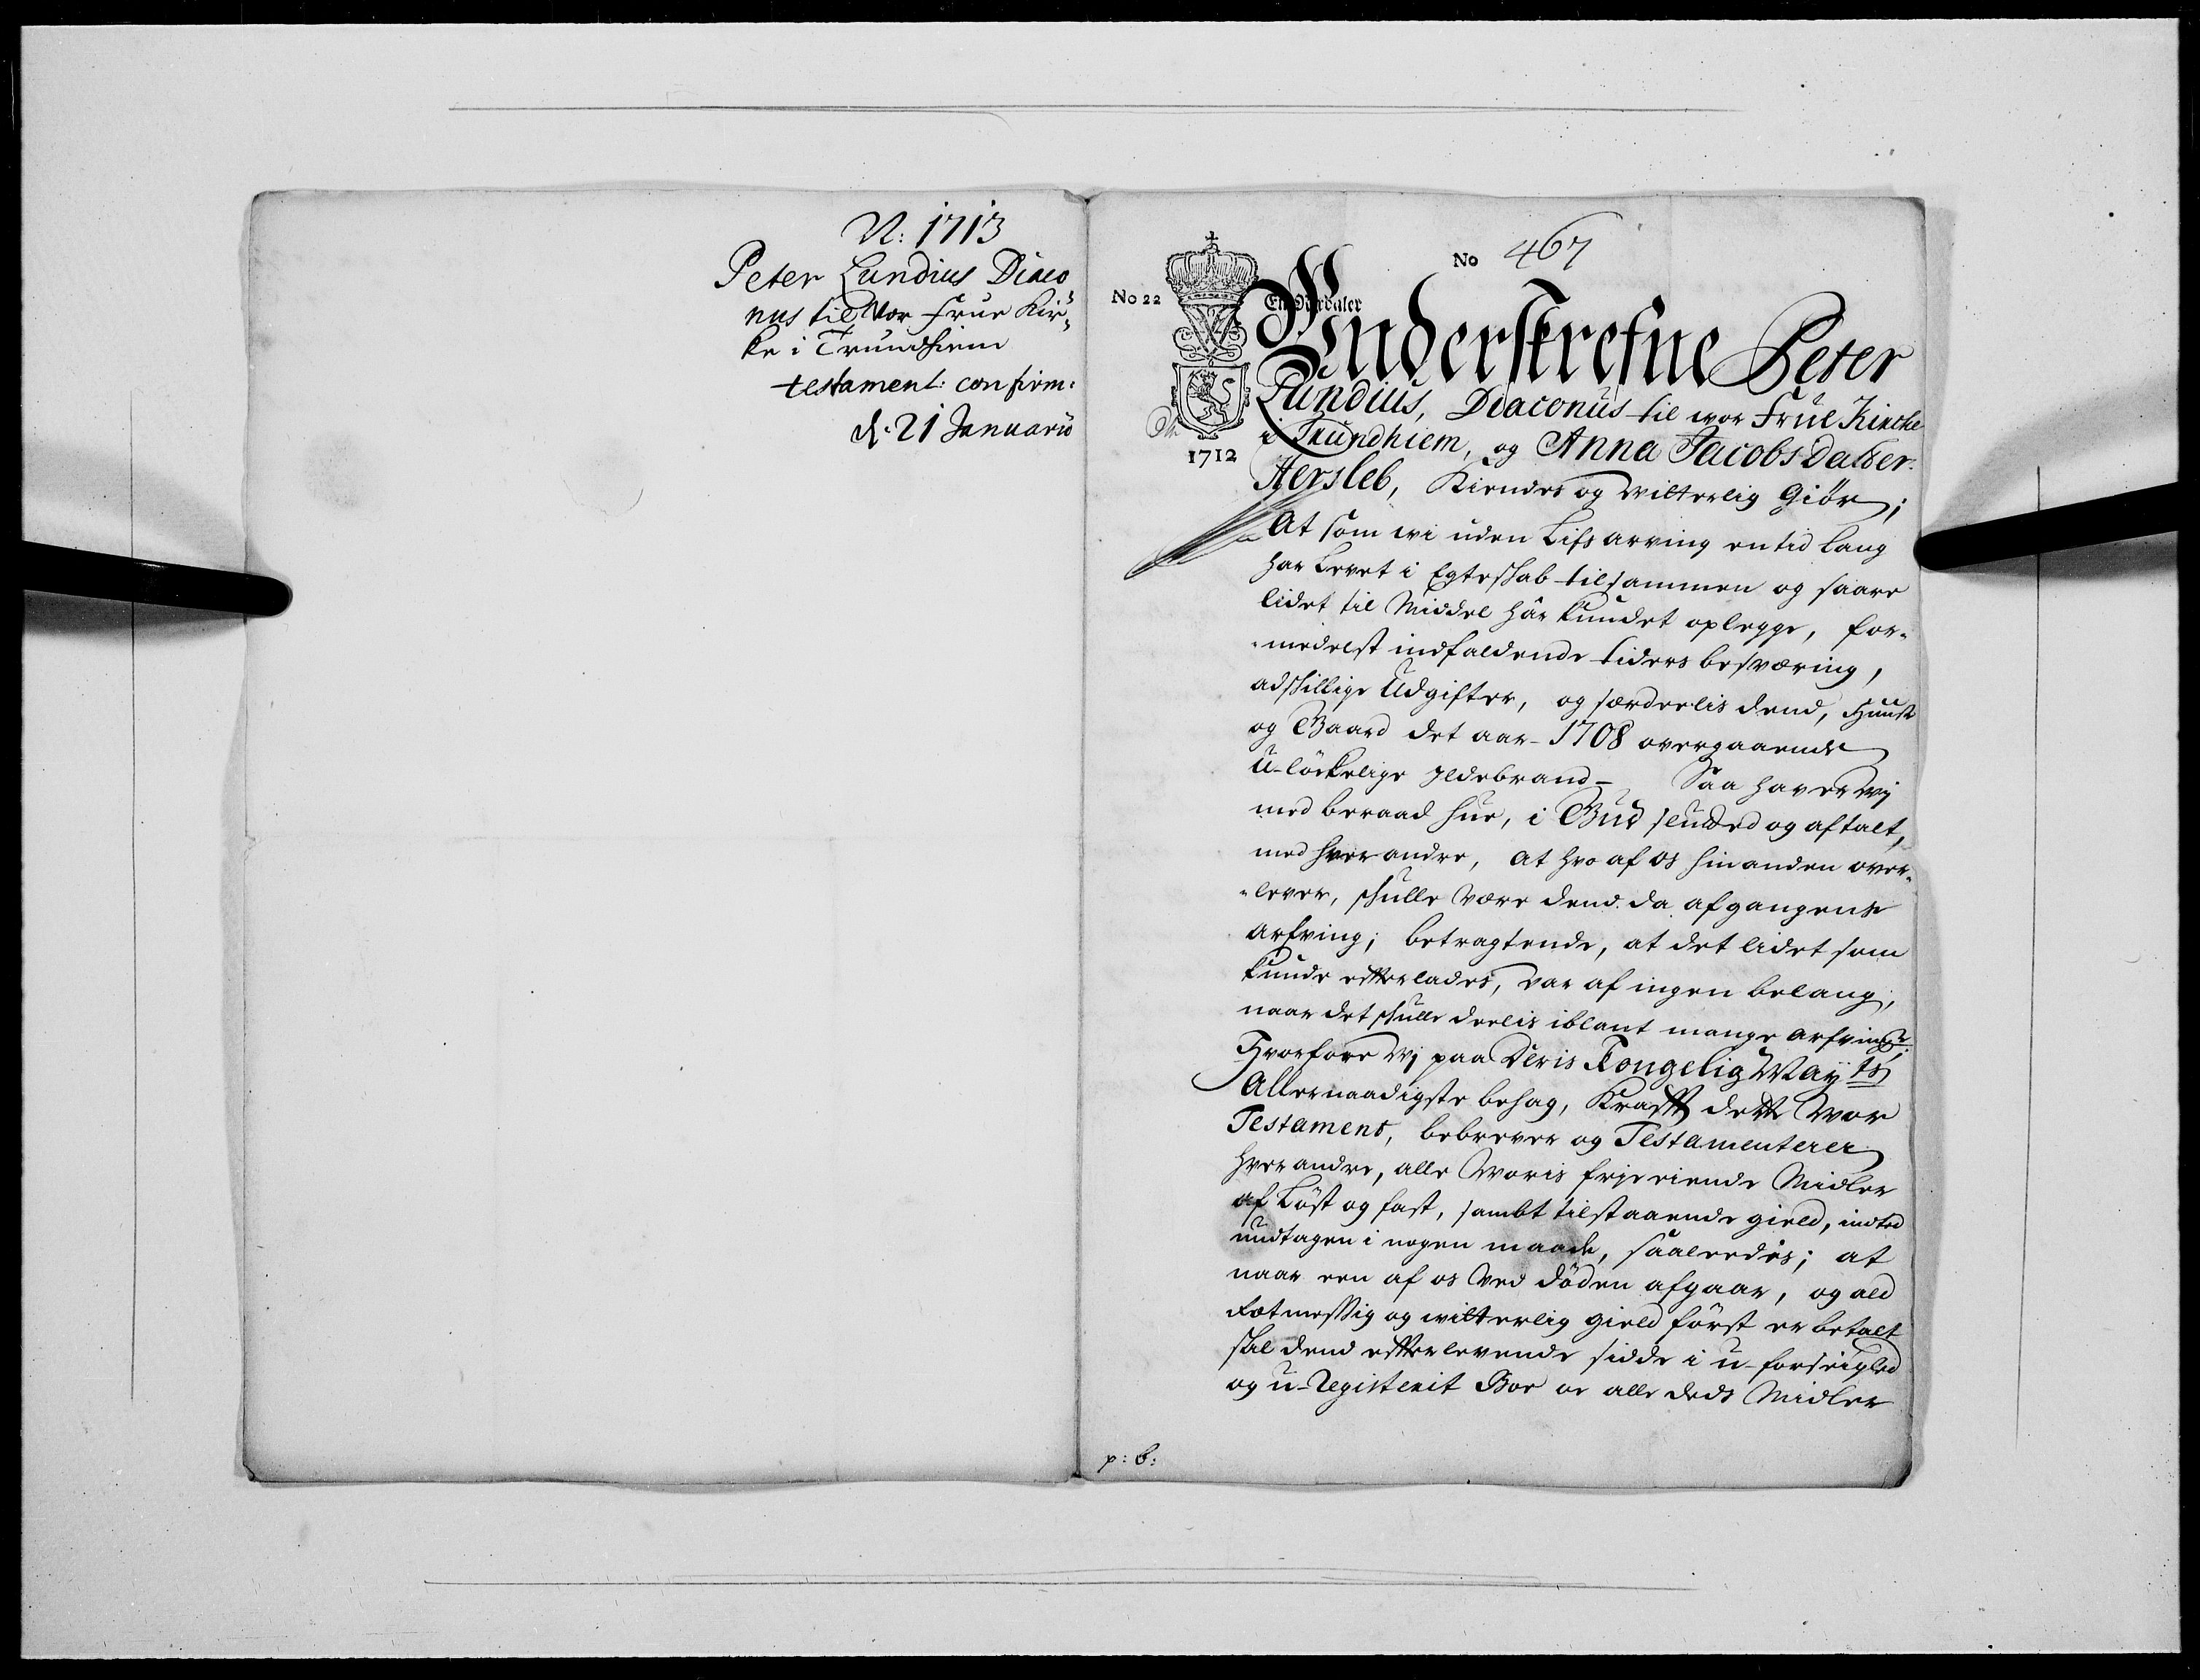 N: 1713
Peter Lundius Diaco
nus til Vor Frue Kir-
ke i Trundhiem
testament: confirm:
d. 21 Januarii
No 467
No 22
En Ort daler
1712
Underskrefne Peter
Lundius, Diaconus til wor Frue Kirche
i Trundhiem, og Anna Jacobs Datter
Hersleb, Kiendes og vitterlig Giør;
At som wi uden Lifs arving en tid lang
har Levet i Egteskab tilsammen og saare
lidet til Middel har kundet oplegge, for-
-medelst indfaldende tiders besværing,
adskillige Udgifter, og særdeelis dend, Huuse
og Gaard det aar 1708 overgaaende
U-löckelige Ildebrand- Saa haver Wj
med beraad hue, i Gud slutted og aftalt,
med hver andre, at hvo af os hinanden over-
-lever, skulle være dend da afgangens
arfving; betragtende, at det lidet som
kunde efterlades, var af ingen belang,
naar det skulle deelis iblant mange arfvinger.
Hvorfore Wj paa Deris Kongelig Mayts
Allernaadigste behag, Krafft dette Wor
Testament, bebrever og Testamenterer
hver andre, alle Woris frje eiende Midler
af Löst og fast, sambt tilstaaende gield, indted
undtagen i nogen maade, saaleedis; at
naar een af os Ved döden afgaar, og ald
Retmessig og witterlig gield först er betalt
skal dend efterlevende sidde i u-forseigled
og u-Registerit Boe or alle dends Midler
p: b: